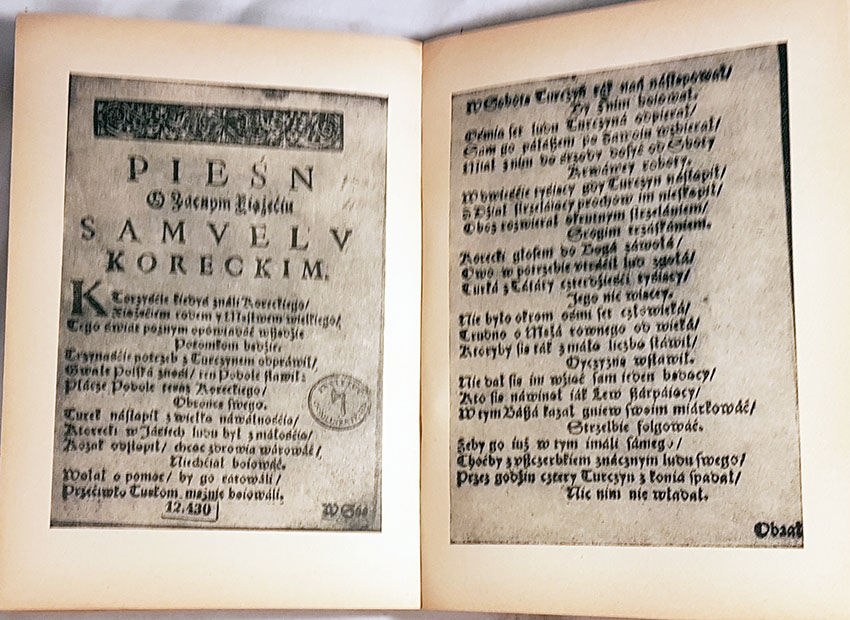 PIEŚN
O Zacnym Xiążęciu
SAMVELV
KORECKIM.
KTorzyśćie kiedyś ználi Koreckiego/
Xiążęćiem rodem y Męstwem wielkiego/
Tego świat poznym opowiádáć wszędzie
Potomkom będzie.
Trzynaśćie potrzeb z Turczynem odpráwił/
Gwałt Polská ten Podole
Płácze Podole teraz Koreckiego/
Obrońce swego.
Turek nástąpił z wielką náwáłnośćią/
Ktorecki w Jásiech ludu był z máłośćią/
Kozak odstąpił/ chcąc zdrowia wárowáć/
Niechćiał boiowáć.
Wołał o pomoc/ by go rátowáli/
Przećiwko Turkom mężnie boiowáli.
12.430
W So
W Sobotę Turczyn nád nástępował/
By z nim boiował.
Ośmią set ludu Turczyná odpierał/
Sam go páłászem po zawoiu
Miał z nim do śrzody dosyć od Soboty
Krwáwey roboty.
W dwieśćie tyśiący gdy Turczyn nástąpił/
Z Dział strzeláiący prochow im nieskąpił/
Oboz rozwierał okrutnym strzelániem/
Srogim trzáskániem.
Korecki głosem do Bogá záwoła/
Owo w potrzebie vtráćił lud zgołá/
Turká z Tátáry czterdźieśći tyśiący/
Jego nic więcey.
Nie było okrom ośmi set człowieká/
Trudno o Mężá rownego od wieká/
Ktoryby się ták z máłą liczbą stáwił/
Oyczyznę wsławił.
Nie dał się im wźiąć sam ieden będący/
Kto się náwinął iák Lew szárpáiący/
W tym Bászá kazał gniew swoim miárkowáć/
Strzelbie folgowáć.
Żeby go iuż w tym imáli sámego/
Choćby z vszczerbkiem znácznym ludu swego/
Przez godźin cztery Turczyn z koniá spadał/
Nic nim nie władał.